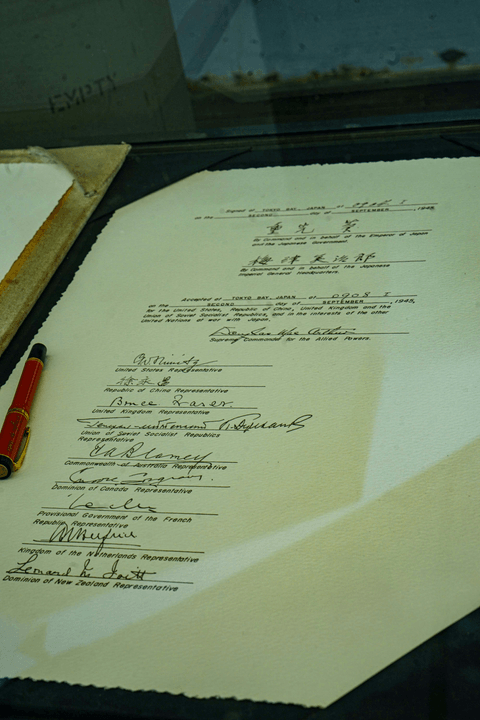 EMPTY
Signed at TOKYO BAY, JAPAN at 0904 I
on the SECOND day of SEPTEMBER, 1945.
重光葵
By Command and in behalf of the Emperor of Japan
and the Japanese Government.
梅津美治郎
By Command and in behalf of the Japanese
Imperial General Headquarters.
Accepted at TOKYO BAY, JAPAN at 0908 I
on the SECOND day of SEPTEMBER, 1945,
for the United States, Republic of China, United Kingdom and the
Union of Soviet Socialist Republics, and in the interests of the other
United Nations at war with Japan.
Douglas MacArthur
Supreme Commander for the Allied Powers.
C.W. Nimitz
United States Representative
徐永昌
Republic of China Representative
Bruce Fraser
United Kingdom Representative
Union of Soviet Socialist Republics
Representative
T.A. Blamey
Commonwealth of Australia Representative
Dominion of Canada Representative
Provisional Government of the French
Republic Representative
Kingdom of the Netherlands Representative
Leonard M. Isitt
Dominion of New Zealand Representative